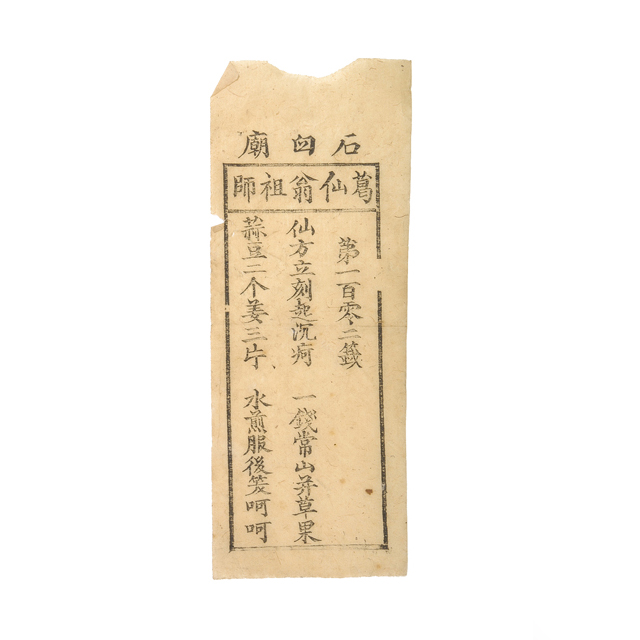 石四廟
葛仙翁祖師
第一百零二籤
仙方立刻起沉疴 一錢常山并草果
蒜豆二个姜三片 水煎服後笑呵呵